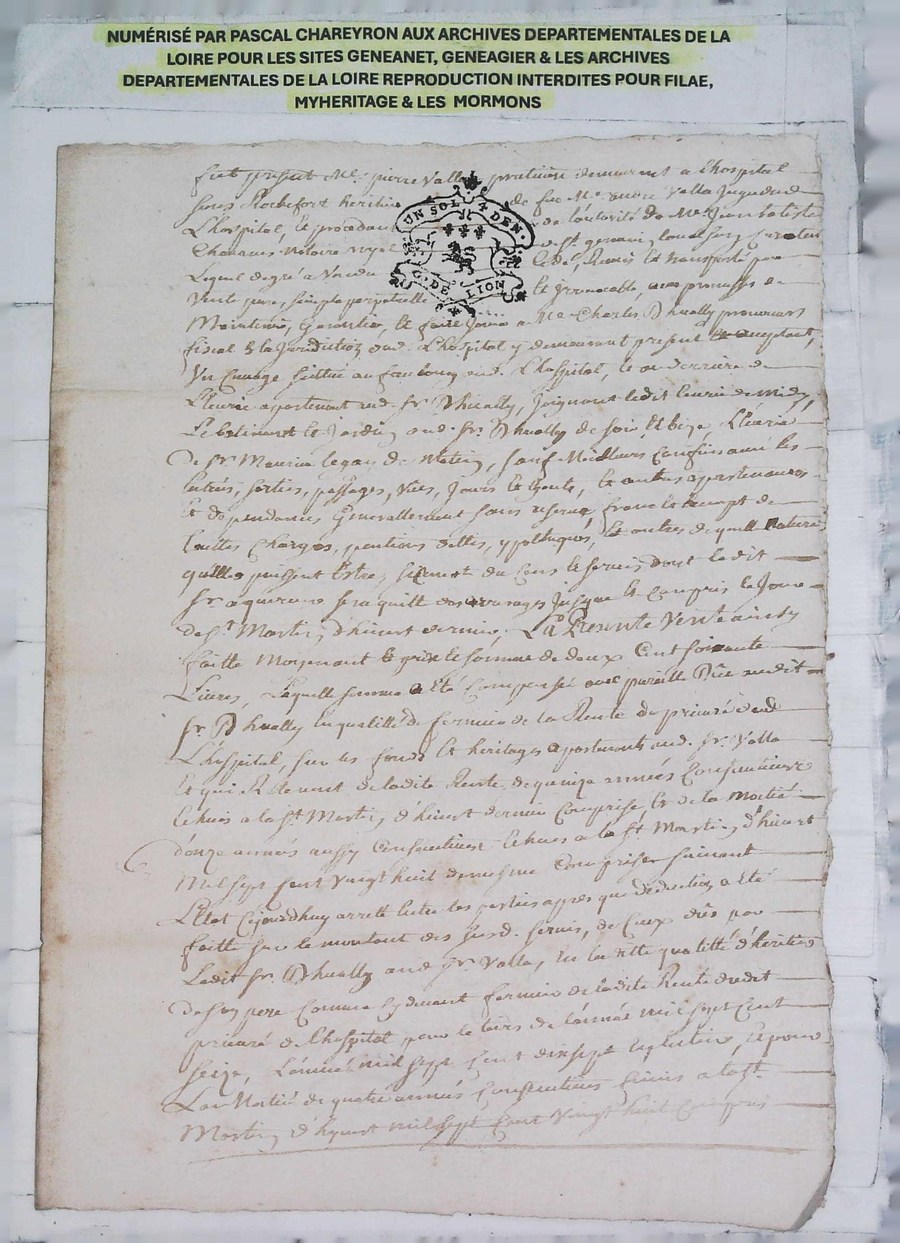 NUMÉRISÉ PAR PASCAL CHAREYRON AUX ARCHIVES DEPARTEMENTALES DE LA
LOIRE POUR LES SITES GENEANET, GENEAGIER & LES ARCHIVES
DEPARTEMENTALES DE LA LOIRE REPRODUCTION INTERDITES POUR FILAE,
MYHERITAGE & LES MORMONS
UN SOL 4 DEN.
G. DE LION
fut present Me. pierre Valla praticien demeurant a Lhospital
sous Rochefort heritier de feu Me Valla
Lhospital, et procedant de Lautorité de Me Jean batiste
notaire royal de st germain
Lequel degré a Vendu Cedé, Remis et transporté par
Vente pure, simple perpetuelle et Irrevocable, avec promesse de
Maintenir, Garantir, et faire Jouir a Me Charles procureur
fiscal de la Juridiction dud. Lhospital y demeurant present et acceptant,
Un situé au faubourg dud. Lhospital, et au derriere de
apartenant aud. Sr. Joignant de midy,
Le batiment et Jardin dud. Sr. de soir, et bize
De Sr. Maurice de Matin, sauf Meilleurs Confins avec les
entrées, sorties, passages, Vües, Jours et autres apartenances
et dependances Generallement sans reserve, franc et exempt de
touttes Charges, pentions dettes, ypotheques, et autres de quelle Nature
quelles puissent Estre, du Cens et servis dont ledit
Sr. des arrerages Jusques et Compris le Jour
de St. Martin d'hiver dernier. La Presente Vente ainsy
faitte Moyennant le prix et somme de deux Cent soixante
Livres, Laquelle somme a Eté Compensée avec pareille Düe audit
Sr. En qualitté de fermier de la Rente du prieuré dud.
Lhospital, sur les fonds et heritages apartenants aud. Sr. Valla
et qui de ladite Rente, de quinze années Consecutives
Echues a la St Martin d'hiver dernier Comprise, et de la Moitié
d'onze années aussy Consecutives Echues a la St Martin d'hiver
Mil sept Cent Vingt huit Comprise suivant
L'Etat Cejourdhuy arretté Entre les parties apres que deduction a Eté
faitte sur le montant des susd. servis, de Ceux dûs par
Ledit Sr. aud. Sr. Valla, En laditte qualitté d'heritier
de son pere Comme Cydevant fermier de ladite Rente dudit
prieuré de Lhospital, pour le tiers de l'année mil sept Cent
seize, L'année mil sept Cent dixsept et pour
La Moitié de quatre années Consecutives finies a la St.
Martin d'hyvert mil sept Cent Vingt huit Compris